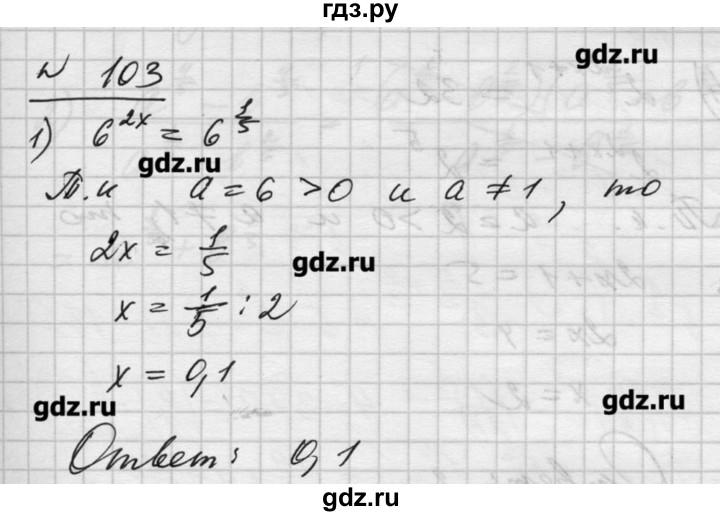 гдз.ру
gdz.ru
№ 103
1) 6^{2x} = 6^{1/5}
gdz.ru
Т.к a = 6 > 0 и a ≠ 1, то
2x = 1/5
gdz.ru
x = 1/5 : 2
x = 0,1
gdz.ru
gdz.ru
Ответ: 0,1
gdz.ru